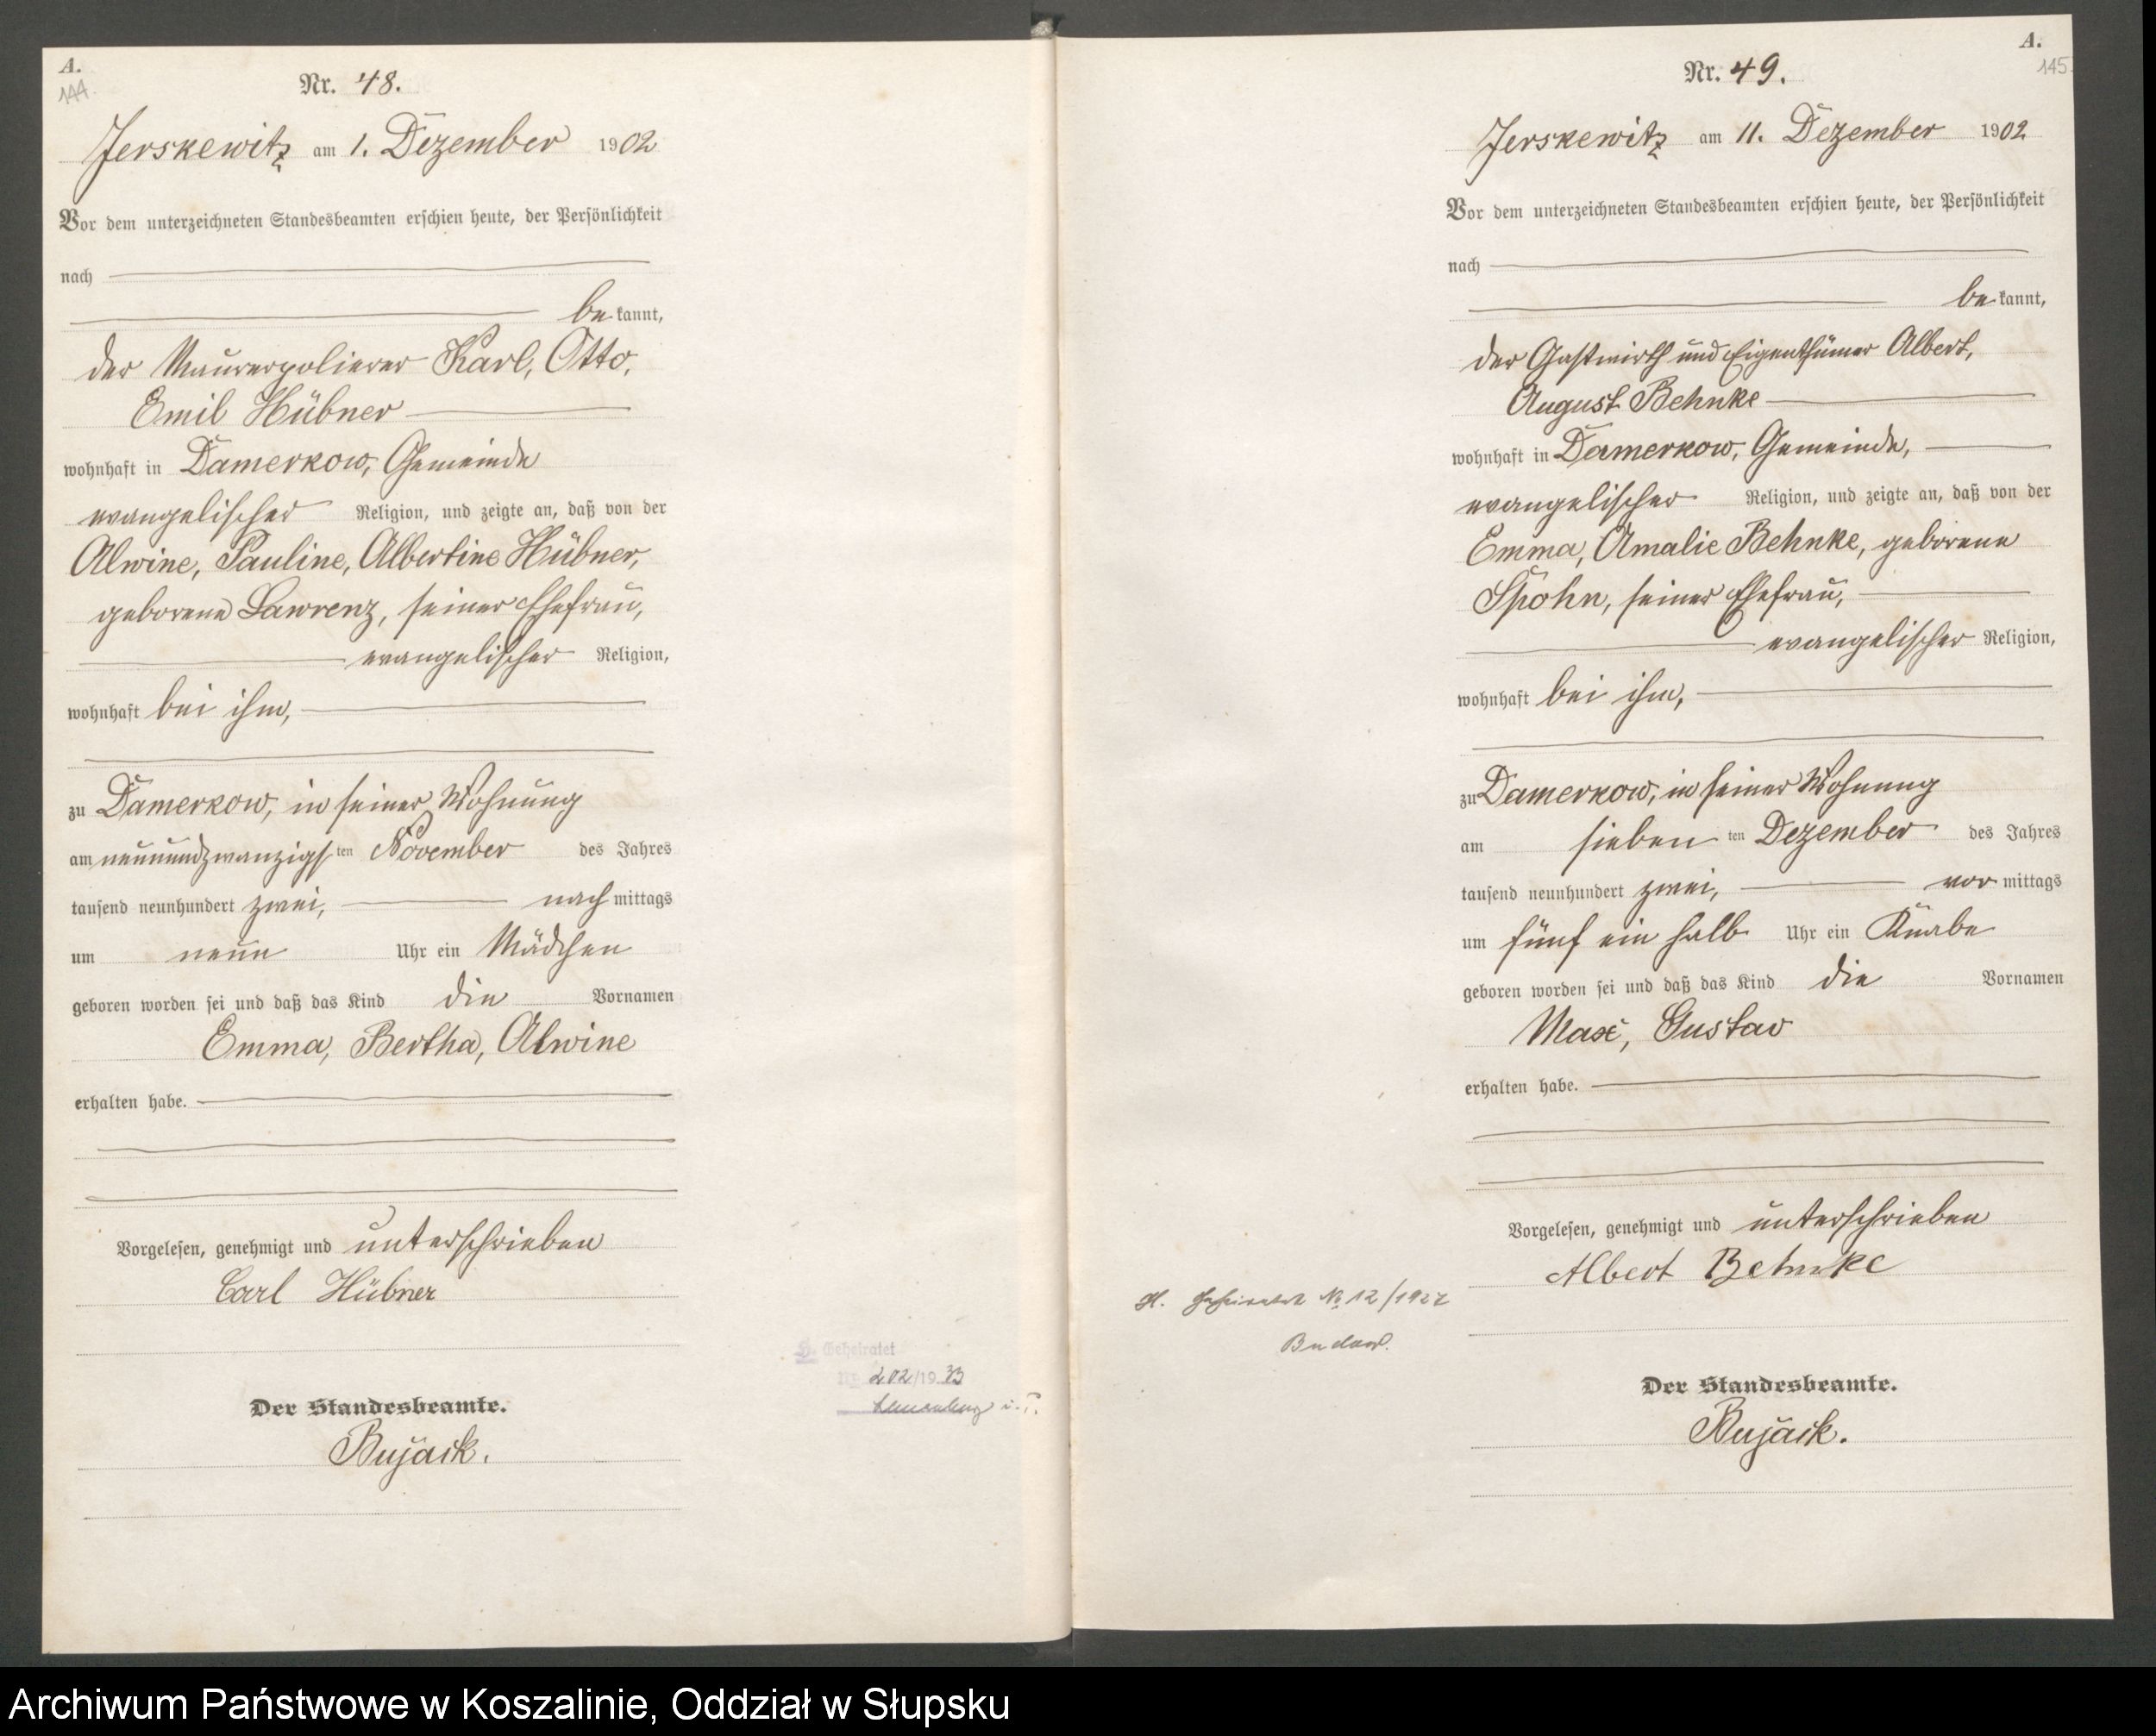 A.
144.
Nr. 48.
Jerskewitz am 1. Dezember 1902
Vor dem unterzeichneten Standesbeamten erschien heute, der Persönlichkeit
nach
be kannt,
der Maurerpolierer Karl, Otto,
Emil Hübner
wohnhaft in Damerkow, Gemeinde
evangelischer Religion, und zeigte an, daß von der
Alwine, Pauline, Albertine Hübner,
geborene Lawrenz, seiner Ehefrau,
evangelischer Religion,
wohnhaft bei ihm,
zu Damerkow, in seiner Wohnung
am neunundzwanzigs ten November des Jahres
tausend neunhundert zwei, nach mittags
um neun Uhr ein Mädchen
geboren worden sei und daß das Kind die Vornamen
Emma, Bertha, Alwine
erhalten habe.
Vorgelesen, genehmigt und unterschrieben
Carl Hübner
H. Geheiratet
Nr. 202/1933
Der Standesbeamte.
Bujack.
A.
145.
Nr. 49.
Jerskewitz am 11. Dezember 1902
Vor dem unterzeichneten Standesbeamten erschien heute, der Persönlichkeit
nach
be kannt,
der Gastwirth und Eigenthümer Albert,
August Behnke
wohnhaft in Damerkow, Gemeinde,
evangelischer Religion, und zeigte an, daß von der
Emma, Amalie Behnke, geborene
Spohn, seiner Ehefrau,
evangelischer Religion,
wohnhaft bei ihm,
zu Damerkow, in seiner Wohnung
am sieben ten Dezember des Jahres
tausend neunhundert zwei, vor mittags
um fünf ein halb Uhr ein Knabe
geboren worden sei und daß das Kind die Vornamen
Max, Gustav
erhalten habe.
Vorgelesen, genehmigt und unterschrieben
Albert Behnke
H. Geheiratet № 12/1927
Budow.
Der Standesbeamte.
Bujack.
Archiwum Państwowe w Koszalinie, Oddział w Słupsku